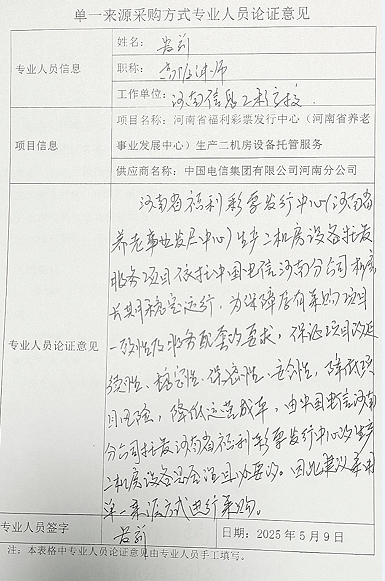 单一来源采购方式专业人员论证意见
专业人员信息
姓名：
职称：高级讲师
工作单位：河南信息工程学校
项目信息
项目名称：河南省福利彩票发行中心（河南省养老
事业发展中心）生产二机房设备托管服务
供应商名称：中国电信集团有限公司河南分公司
专业人员论证意见
河南省福利彩票发行中心(河南省
养老事业发展中心)生产二机房设备托管
服务项目依托中国电信河南分公司机房
长期稳定运行，为保障原有采购项目
一致性及服务配套的要求，保证项目的延
续性、稳定性、保密性、安全性，降低项
目风险，降低运营成本，由中国电信河南
分公司托管河南省福利彩票发行中心的生产
二机房设备是合理且必要的。因此建议采用
单一来源方式进行采购。
专业人员签字
日期：2025年5月9日
注：本表格中专业人员论证意见由专业人员手工填写。